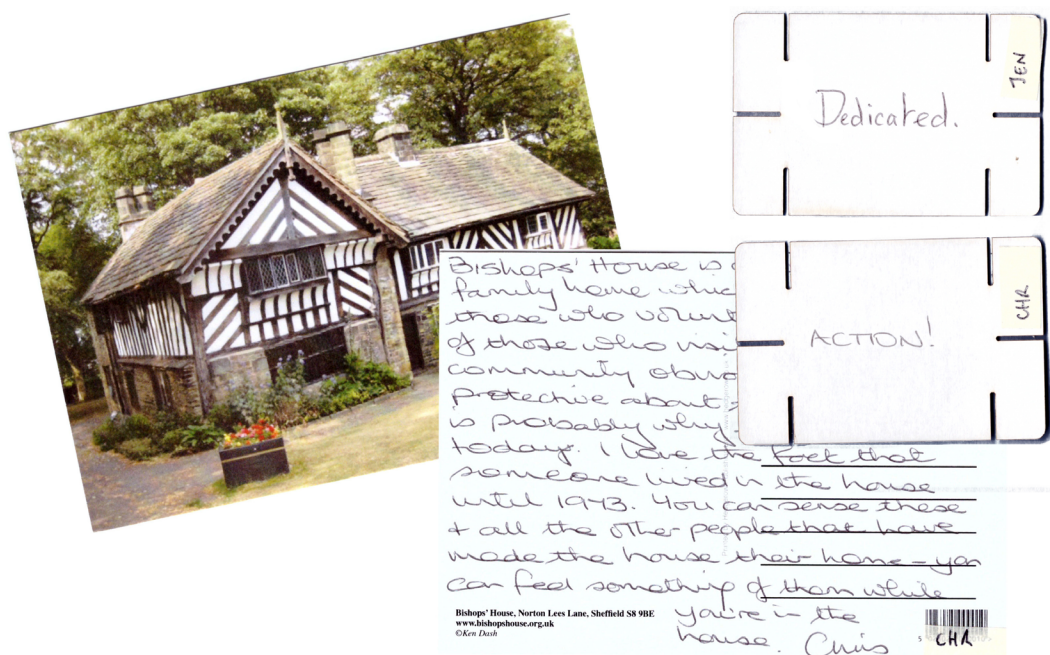 Dedicated.
JEN
ACTION!
CHR
Bishops' House is
family home
those who
of those who
community
protective about
is probably why
today. I love the fact that
someone lived in the house
until 1973. You can sense these
+ all the other people that have
made the house their home – you
can feel something of them while
you're in the
house. Chris
Bishops' House, Norton Lees Lane, Sheffield S8 9BE
www.bishopshouse.org.uk
©Ken Dash
CHR